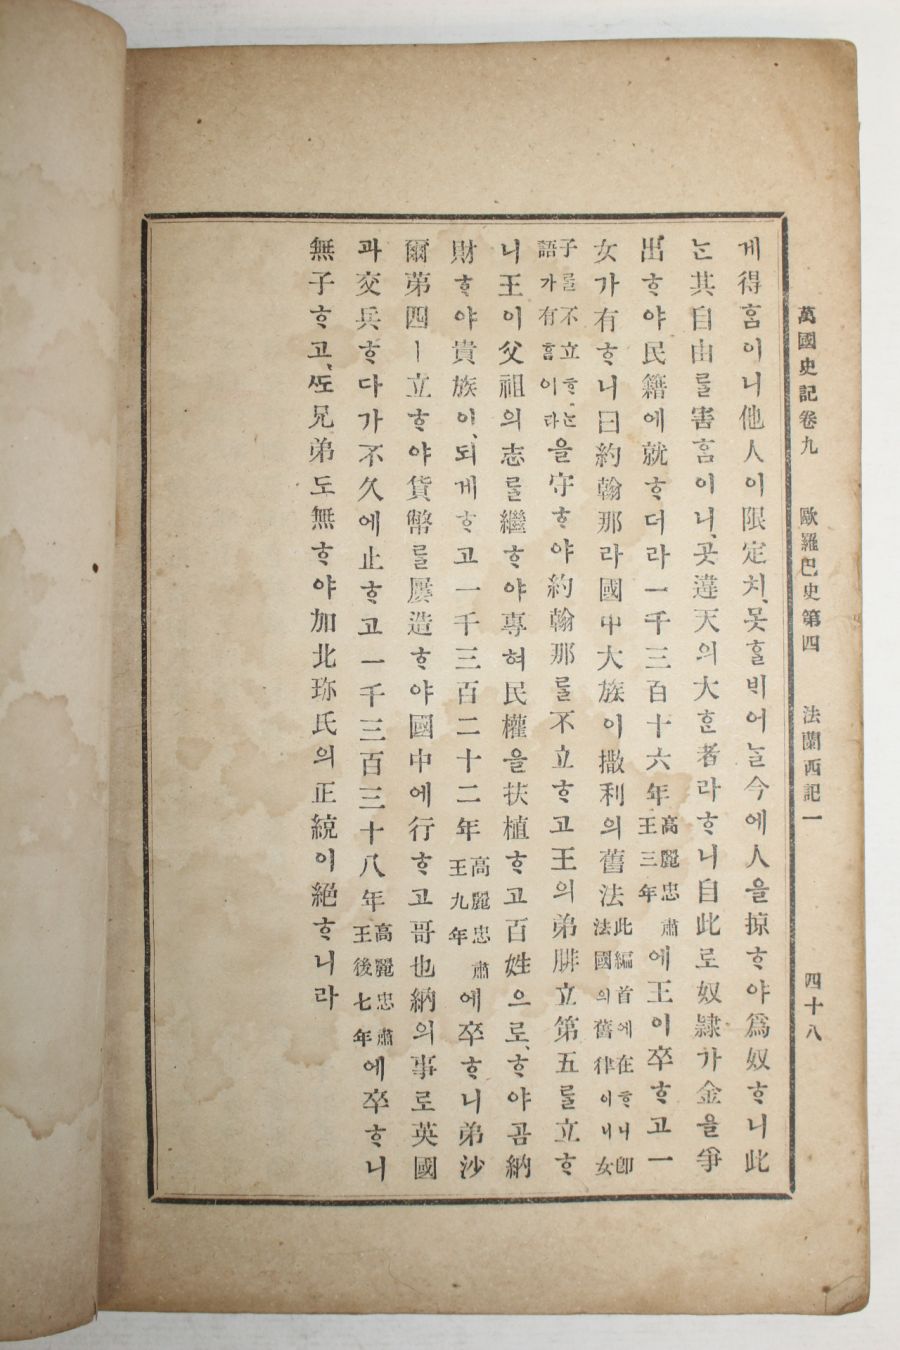 萬國史記卷九 歐羅巴史第四 法蘭西記一 四十八
게得홈이니他人이限定치、못홀비어늘今에人을掠ᄒᆞ야爲奴ᄒᆞ니此
ᄂᆞᆫ其自由를害홈이니、곳違天의大ᄒᆞᆫ者라ᄒᆞ니自此로奴隷가金을爭
出ᄒᆞ야民籍에就ᄒᆞ더라一千三百十六年高麗忠肅王三年에王이卒ᄒᆞ고一
女가有ᄒᆞ니曰約翰那라國中大族이撒利의舊法此編首에在ᄒᆞ니卽法國의舊律이니女
子를不立ᄒᆞᄂᆞᆫ語가有홈이라을守ᄒᆞ야約翰那를不立ᄒᆞ고王의弟腓立第五를立ᄒᆞ
니王이父祖의志를繼ᄒᆞ야專혀民權을扶植ᄒᆞ고百姓으로、ᄒᆞ야곰納
財ᄒᆞ야貴族이、되게ᄒᆞ고一千三百二十二年高麗忠肅王九年에卒ᄒᆞ니弟沙
爾第四ㅣ立ᄒᆞ야貨幣를屢造ᄒᆞ야國中에行ᄒᆞ고哥也納의事로英國
과交兵ᄒᆞ다가不久에止ᄒᆞ고一千三百三十八年高麗忠肅王後七年에卒ᄒᆞ니
無子ᄒᆞ고、ᄯᅩ兄弟도無ᄒᆞ야加北珎氏의正統이絕ᄒᆞ니라